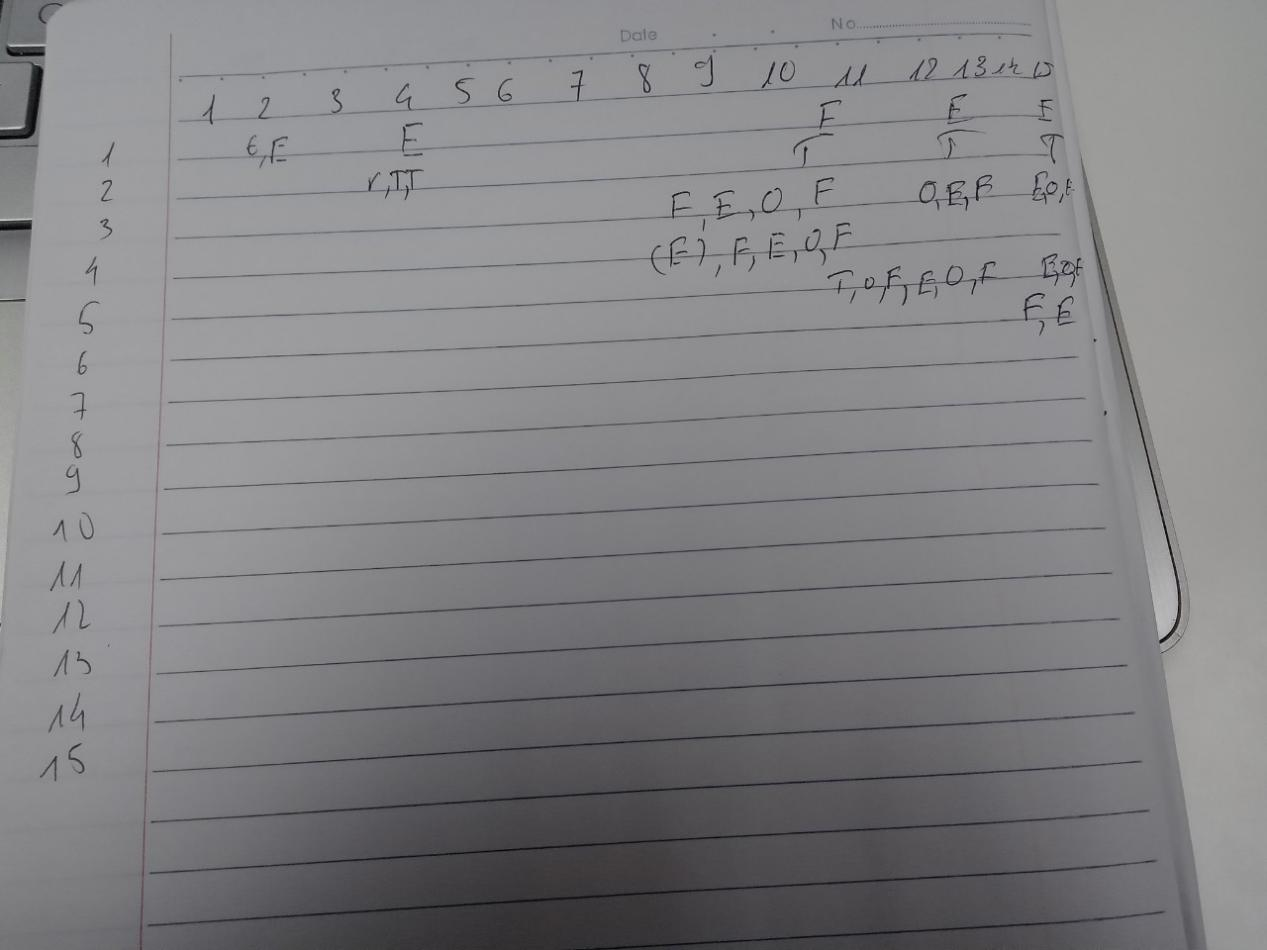 Date No
1 2 3 4 5 6 7 8 9 10 11 12 13 14 15
F E E
1 E, E E T T T
2 r, T, T
3 F, E, O, F O, E, B E, O,
4 (E), F, E, O, F
5 T, O, F, E, O, F E, O,
F, E
6
7
8
9
10
11
12
13
14
15